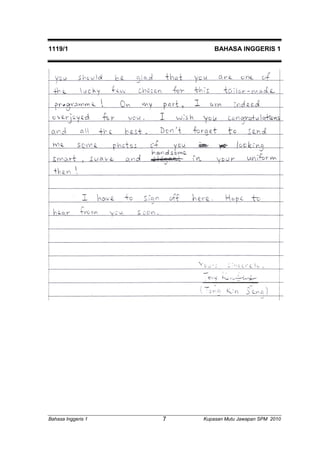 1119/1 BAHASA INGGERIS 1
you should be glad that you are one of
the lucky few chosen for this tailor-made
programme! On my part, I am indeed
overjoyed for you. I wish you congratulations
and all the best. Don't forget to send
me some photos of you looking
handsome
smart, suave and elegant in your uniform
then!
I have to sign off here. Hope to
hear from you soon.
Yours sincerely,
(Tong Kin Seng)
Bahasa Inggeris 1 7 Kupasan Mutu Jawapan SPM 2010